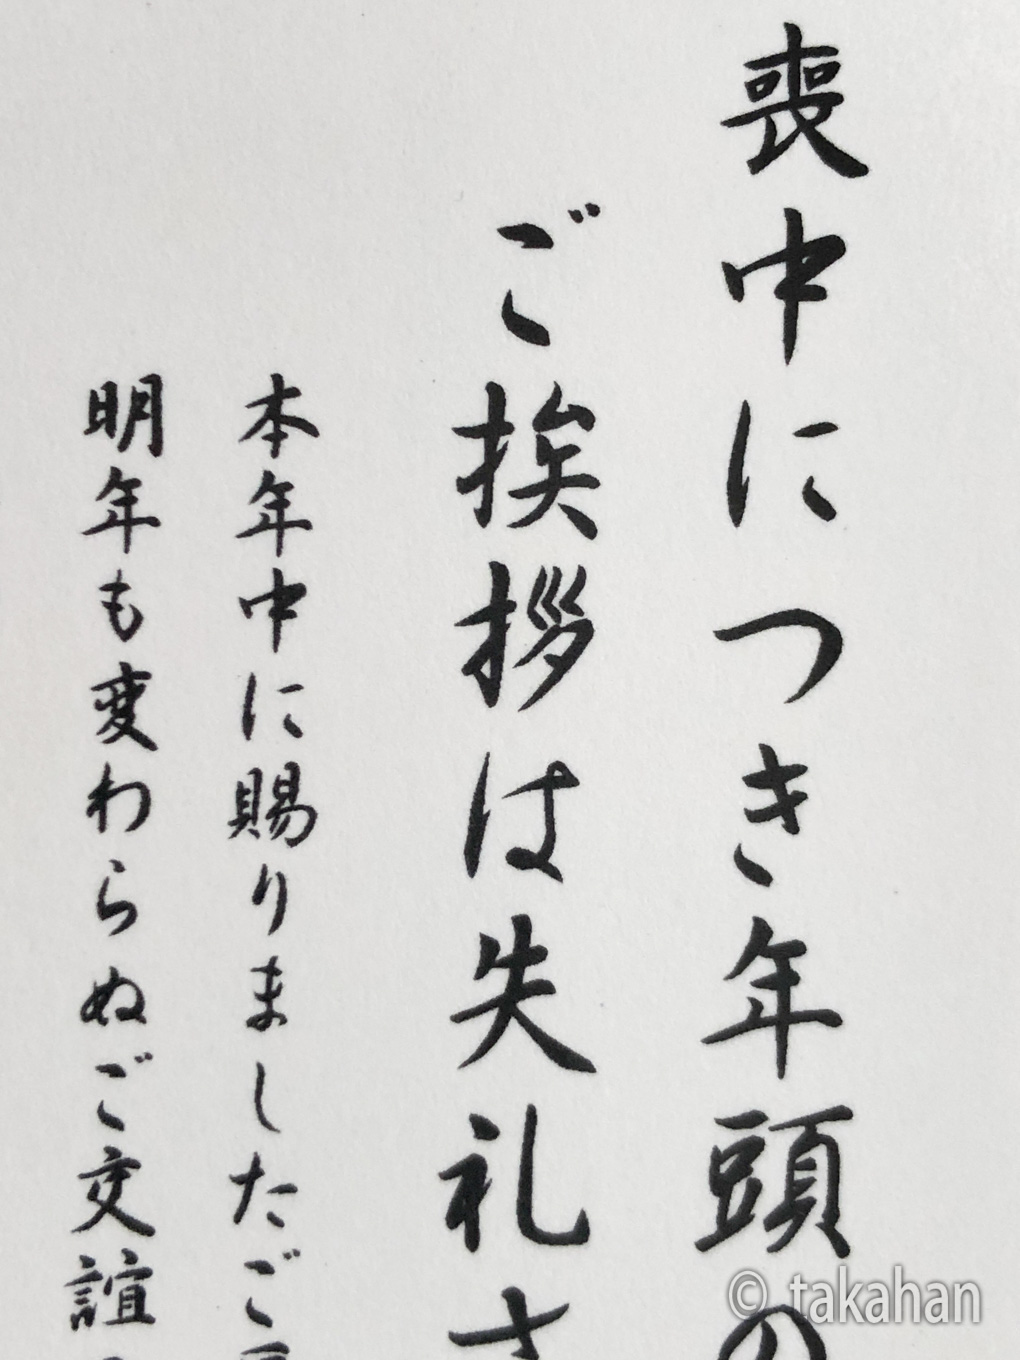 喪中につき年頭の
ご挨拶は失礼さ
本年中に賜りましたご
明年も変わらぬご交誼
© takahan